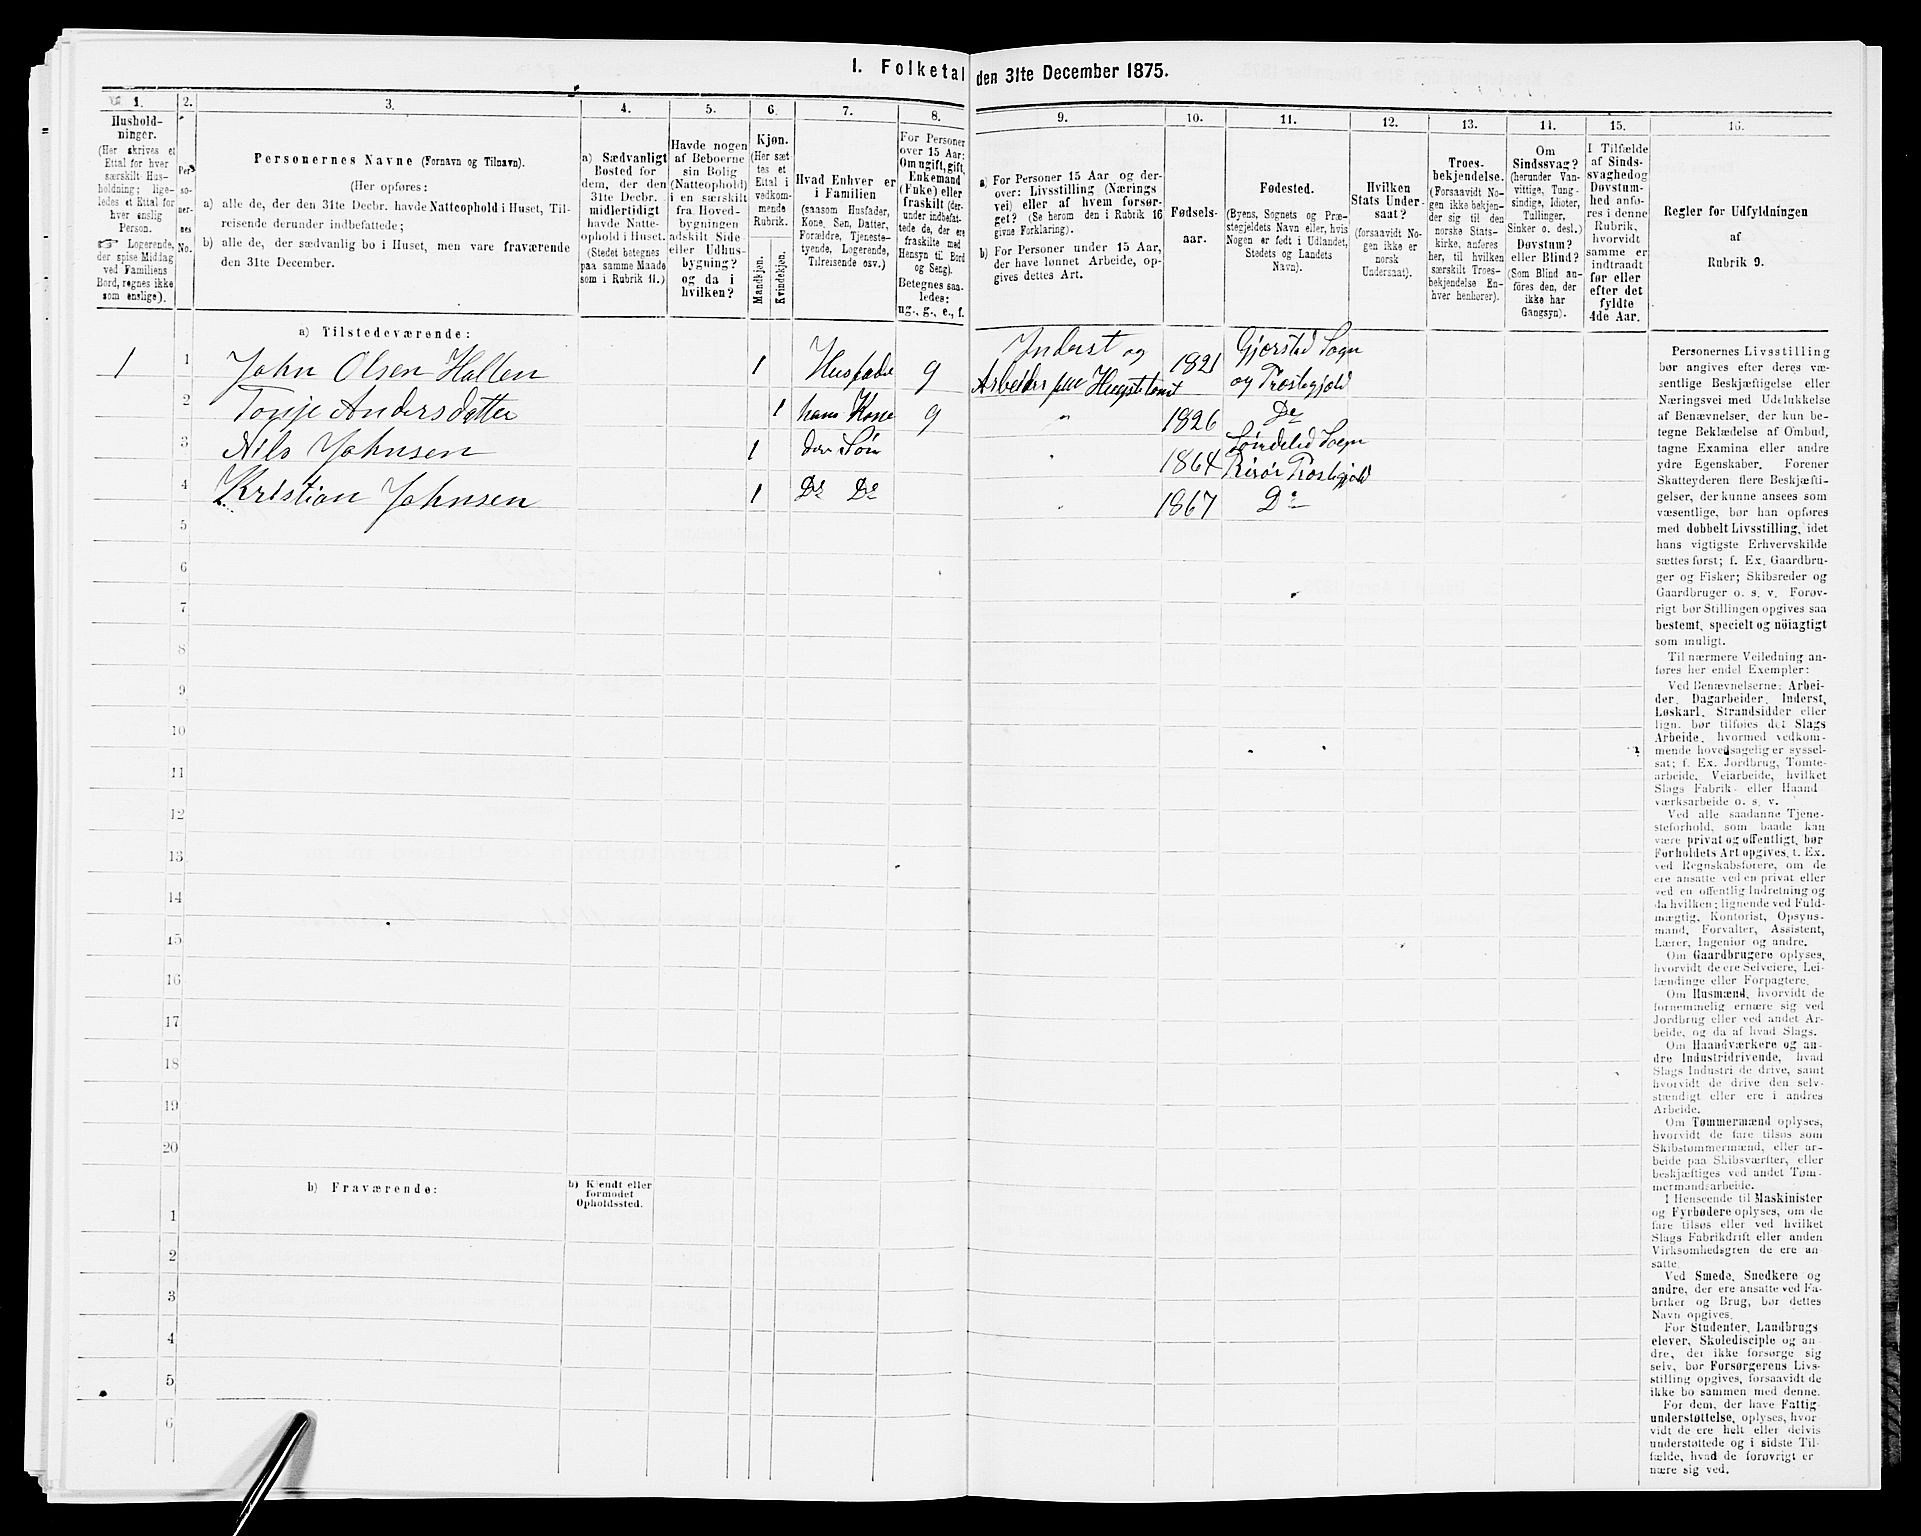 1. Folketal den 31te December 1875.
1.
Hushold-
ninger.
(Her skrives et
Ettal for hver
særskilt Hus-
holdning; lige-
ledes et Ettal for
hver enslig
Person.
☞ Logerende,
der spise Middag
ved Familiens
Bord, regnes ikke
som enslige).
2.
Per-
so-
ner-
nes
No.
3.
Personernes Navne (Fornavn og Tilnavn).
(Her opføres:
a) alle de, der den 31te Decbr. havde Natteophold i Huset, Til-
reisende derunder indbefattede;
b) alle de, der sædvanlig bo i Huset, men vare fraværende
den 31te December.
4.
a) Sædvanligt
Bosted for
dem, der den
31te Decbr.
midlertidigt
havde Natte-
ophold i Huset.
(Stedet betegnes
paa samme Maade
som i Rubrik 11.)
5.
Havde nogen
af Beboerne
sin Bolig
(Natteophold)
i en særskilt
fra Hoved-
bygningen
adskilt Side-
eller Udhus-
bygning?
og da i
hvilken?
6.
Kjøn.
(Her sæt-
tes et
Ettal i
vedkom-
mende
Rubrik.
Mandkjøn.
Kvindekjøn.
7.
Hvad Enhver er
i Familien
(saasom Husfader,
Kone, Søn, Datter,
Forældre, Tjeneste-
tyende, Logerende,
Tilreisende osv.)
8.
For Personer
over 15 Aar:
Om ugift, gift,
Enkemand
(Enke) eller
fraskilt (der-
under indbefat-
tede de, der ere
fraskilte med
Hensyn til Bord
og Seng).
Betegnes saa-
ledes:
ug., g., e., f.
9.
a) For Personer 15 Aar og der-
over: Livsstilling (Nærings
vei) eller af hvem forsør-
get? (Se herom den i Rubrik 16
givne Forklaring).
b) For Personer under 15 Aar,
der have lønnet Arbeide, op-
gives dettes Art.
10.
Fødsels-
aar.
11.
Fødested.
(Byens, Sognets og Præ-
stegjeldets Navn eller, hvis
Nogen er født i Udlandet,
Stedets og Landets
Navn).
12.
Hvilken
Stats Under-
saat?
(forsaavidt No-
gen ikke er
norsk
Undersaat).
13.
Troes-
bekjendelse.
(Forsaavidt No-
gen ikke bekjen-
der sig til den
norske Stats-
kirke, anføres
her, til hvilken
særskilt Troes-
bekjendelse En-
hver henhører).
14.
Om
Sindssvag?
(herunder Van-
vittige, Tung-
sindige, Idioter,
Tullinger,
Sinker o. desl.)
Døvstum?
eller Blind?
(Som Blind an-
føres den, der
ikke har
Gangsyn).
15.
I Tilfælde
af Sinds-
svaghed og
Døvstum-
hed anfø-
res i denne
Rubrik,
hvorvidt
samme er
indtraadt
før eller
efter det
fyldte
4de Aar.
16.
Regler for Udfyldningen
af
Rubrik 9.
a) Tilstedeværende:
1 1 John Olsen Hallen 1 Husfader g Inderst og 1821 Gjersted Sogn
Arbeider paa og Præstegjeld
2 Tonje Andersdatter 1 hans Kone g " 1826 Do
3 Nils Johnsen 1 deres Søn " 1864 Søndeled Sogn
Risør Præstegjeld
4 Kristian Johnsen 1 Do Do " 1867 Do
5
6
7
8
9
10
11
12
13
14
15
16
17
18
19
20
b) Fraværende:
b) Kjendt eller
formodet
Opholdssted.
1
2
3
4
5
6
Personernes Livsstilling
bør angives efter deres væ-
sentlige Beskjæftigelse eller
Næringsvei med Udelukkelse
af Benævnelser, der kun be-
tegne Beklædelse af Ombud,
tagne Examina eller andre
ydre Egenskaber. Forener
Skatteyderen flere Beskjæfti-
gelser, der kunne ansees som
væsentlige, bør han opføres
med dobbelt Livsstilling, idet
hans vigtigste Erhvervskilde
sættes først; f. Ex. Gaardbru-
ger og Fisker; Skibsreder og
Gaardbruger o. s. v. Forøv-
rigt bør Stillingen opgives saa
bestemt, specielt og nöiagtigt
som muligt.
Til nærmere Veiledning an-
føres her endel Exempler:
Ved Benævnelserne: Arbei-
der, Dagarbeider, Inderst,
Løskarl, Strandsidder eller
lign. bør tilføies det Slags
Arbeide, hvormed vedkom-
mende hovedsagelig er syssel-
sat; f. Ex. Jordbrug, Tomte-
arbeide, Veiarbeide, hvilket
Slags Fabrik- eller Haand
værksarbeide o. s. v.
Ved alle saadanne Tjene-
steforhold, som baade kan
være privat og offentligt, bør
Forholdets Art opgives, t. Ex.
ved Regnskabsførere, om de
ere ansatte ved en privat eller
ved en offentlig Indretning og
da hvilken; lignende ved Fuld-
mægtig, Kontorist, Opsyns-
mand, Forvalter, Assistent,
Lærer, Ingeniør og andre.
Om Gaardbrugere oplyses,
hvorvidt de ere Selveiere, Lei-
lændinge eller Forpagtere.
Om Husmænd, hvorvidt de
fornemmelig ernære sig ved
Jordbrug eller ved andet Ar-
beide, og da af hvad Slags.
Om Haandværkere og an-
dre Industridrivende, hvad
Slags Industri de drive, samt
hvorvidt de drive den selv-
stændigt eller ere i andres
Arbeide.
Om Tømmermænd oplyses,
hvorvidt de fare tilsøs som
Skibstømmermænd, eller ar-
beide paa Skibsværfter, eller
beskjæftiges ved andet Tøm-
mermandsarbeide.
I Henseende til Maskinister
og Fyrbødere oplyses, om de
fare tilsøs eller ved hvilket
Slags Fabrikdrift eller anden
Virksomhedsgren de ere an-
satte.
Ved Smede, Snedkere og
andre, der ere ansatte ved Fa-
briker og Brug, bør dettes
Navn opgives.
For Studenter, Landbrugs
elever, Skoledisciple og an-
dre, der ikke forsørge sig
selv, bør Forsørgerens Livs-
stilling opgives, forsaavidt de
ikke bo sammen med denne.
For dem, der have Fattig-
understøttelse, oplyses, hvor-
vidt de ere helt eller delvis
understøttede og i sidste Til-
fælde, hvad de forøvrigt er
nære sig ved.